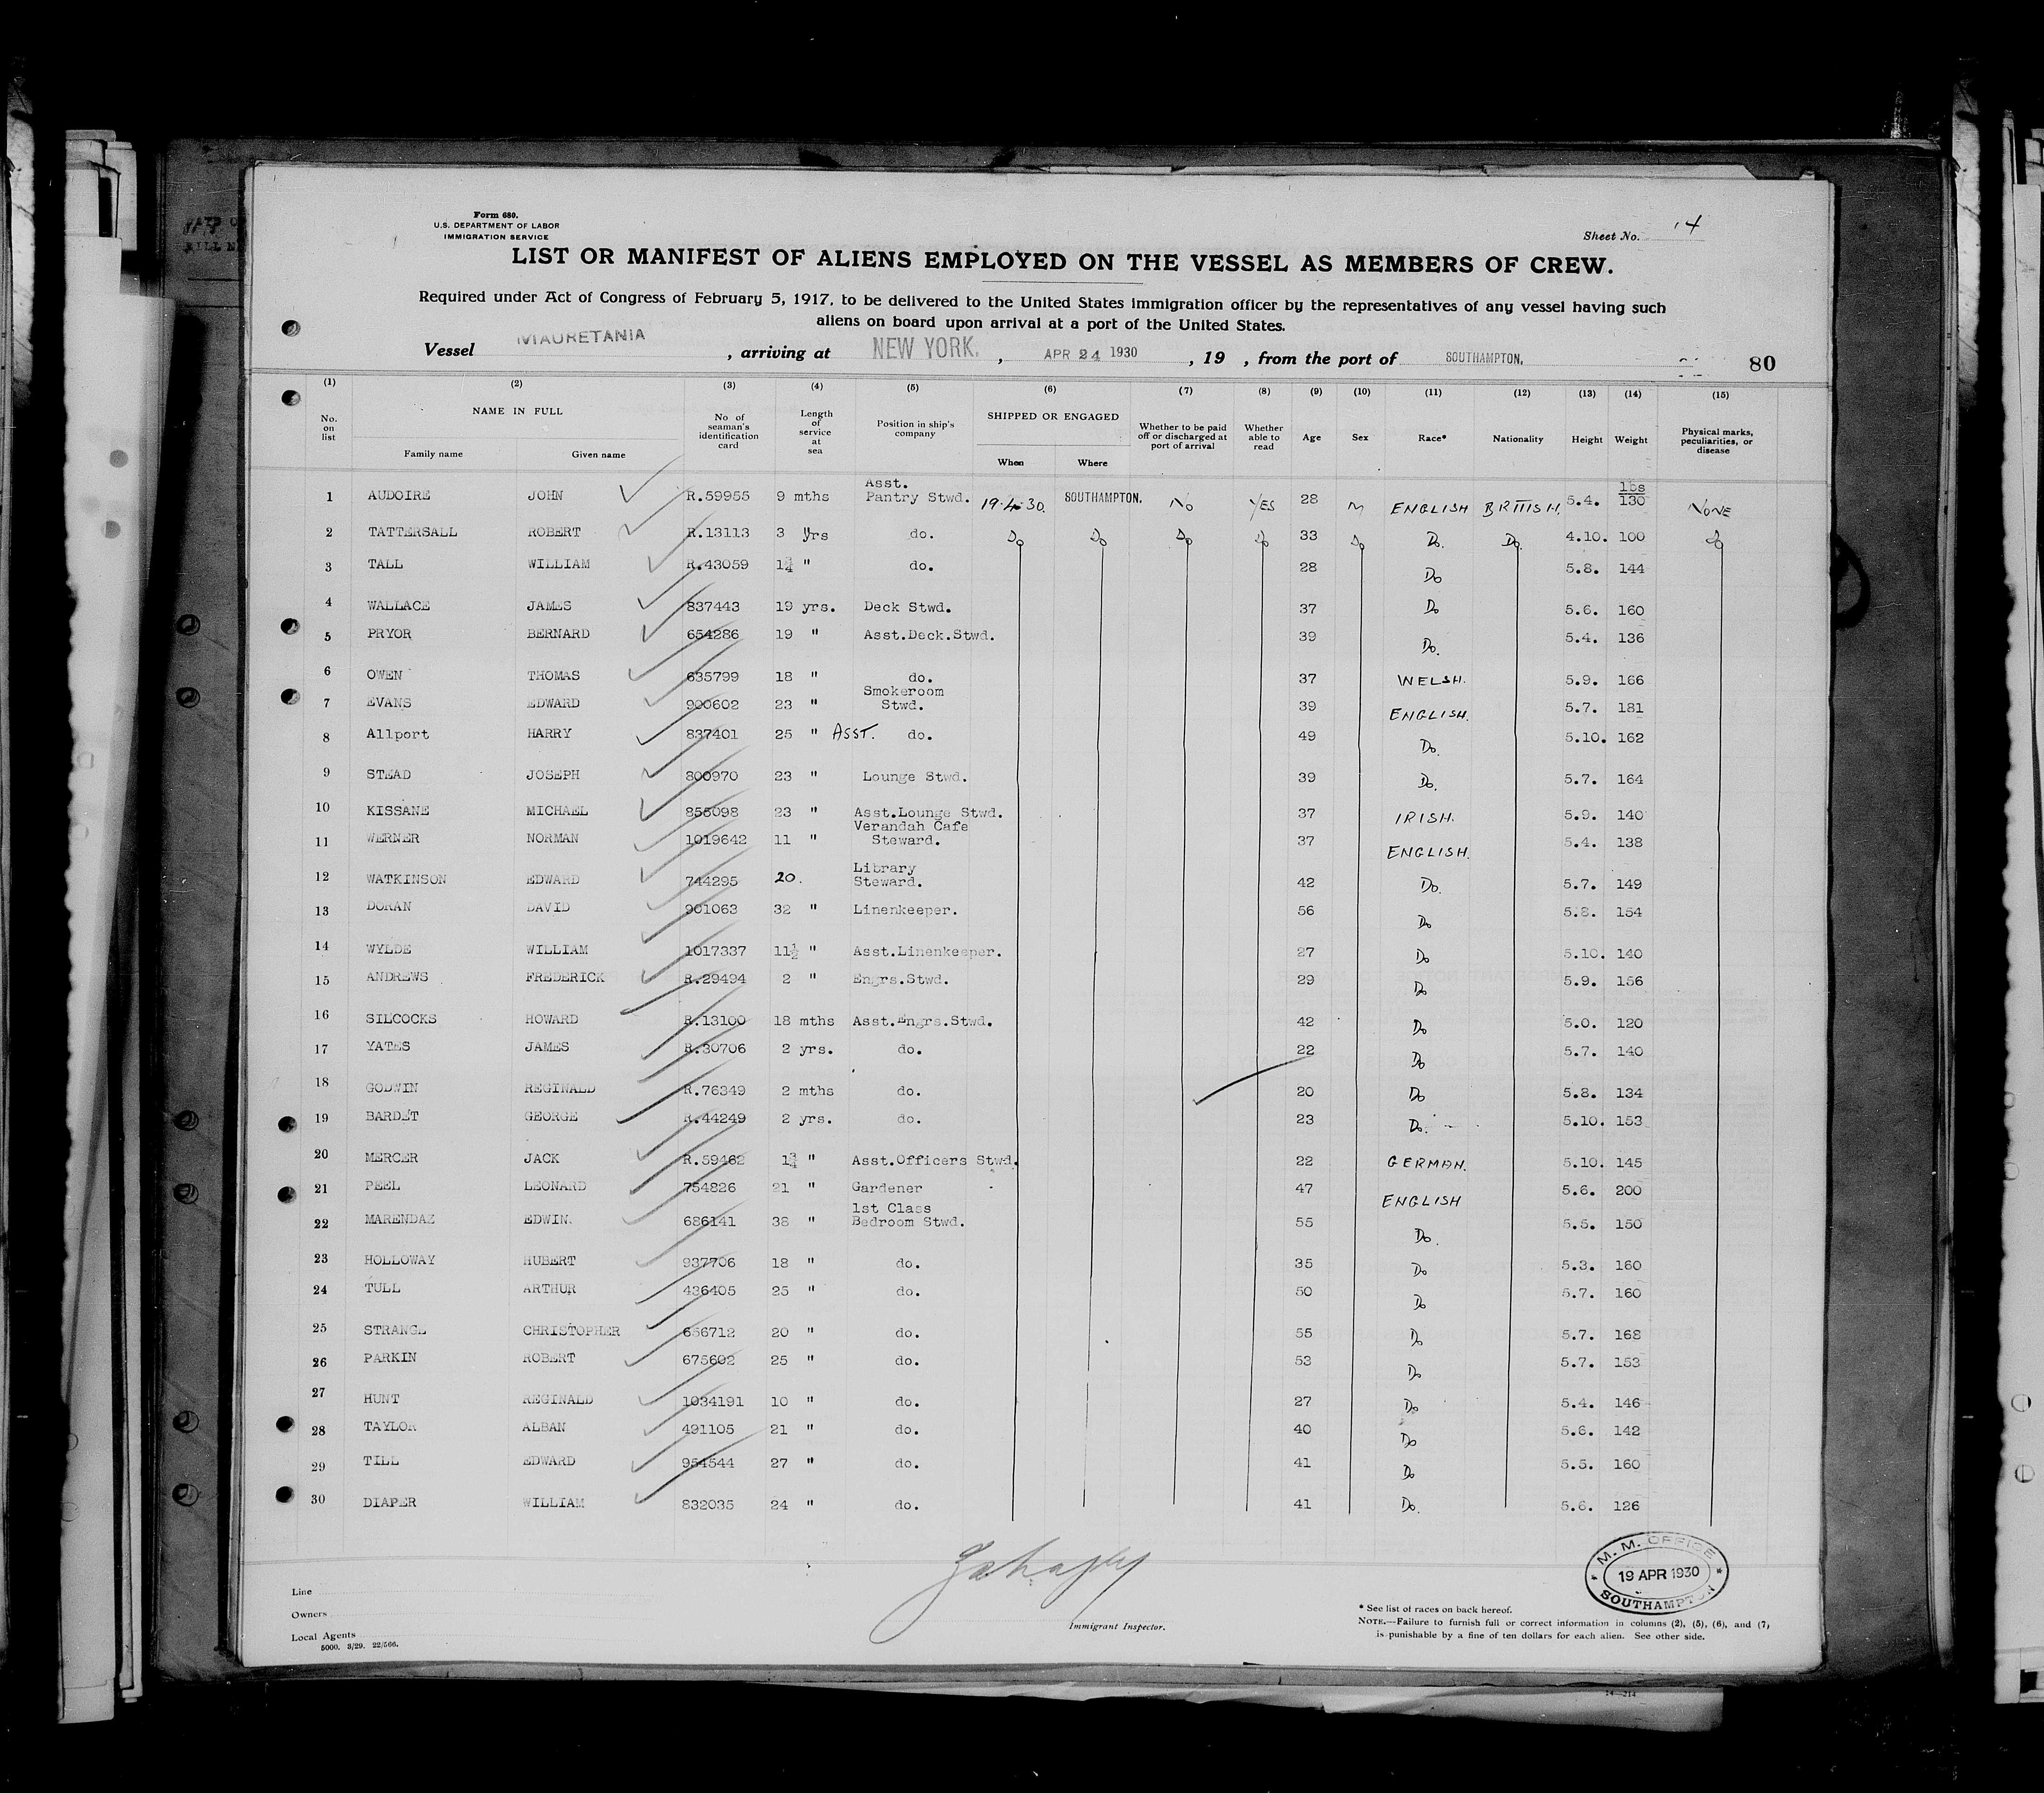 Form 680.
U.S. DEPARTMENT OF LABOR
IMMIGRATION SERVICE
Sheet No. 14
LIST OR MANIFEST OF ALIENS EMPLOYED ON THE VESSEL AS MEMBERS OF CREW.
Required under Act of Congress of February 5, 1917, to be delivered to the United States immigration officer by the representatives of any vessel having such
aliens on board upon arrival at a port of the United States.
Vessel MAURETANIA, arriving at NEW YORK, APR 24 1930, 19 , from the port of SOUTHAMPTON. 80
(1) (2) (3) (4) (5) (6) (7) (8) (9) (10) (11) (12) (13) (14) (15)
No. on list NAME IN FULL Family name Given name No. of seaman's identification card Length of service at sea Position in ship's company SHIPPED OR ENGAGED When Where Whether to be paid off or discharged at port of arrival Whether able to read Age Sex Race* Nationality Height Weight Physical marks, peculiarities, or disease
1 AUDOIRE JOHN R.59955 9 mths Asst. Pantry Stwd. 19.4.30. SOUTHAMPTON. No YES 28 M ENGLISH BRITISH. 5.4. lbs 130 NONE
2 TATTERSALL ROBERT R.13113 3 yrs do. Do Do Do Do 33 Do Do. Do. 4.10. 100 do
3 TALL WILLIAM R.43059 1¾ " do. 28 Do 5.8. 144
4 WALLACE JAMES 837443 19 yrs. Deck Stwd. 37 Do 5.6. 160
5 PRYOR BERNARD 654286 19 " Asst.Deck.Stwd. 39 Do. 5.4. 136
6 OWEN THOMAS 635799 18 " do. 37 WELSH. 5.9. 166
7 EVANS EDWARD 900602 23 " Smokeroom Stwd. 39 ENGLISH. 5.7. 181
8 Allport HARRY 837401 25 " ASST. do. 49 Do. 5.10. 162
9 STEAD JOSEPH 800970 23 " Lounge Stwd. 39 Do. 5.7. 164
10 KISSANE MICHAEL 858098 23 " Asst.Lounge Stwd. 37 IRISH. 5.9. 140
11 WERNER NORMAN 1019642 11 " Verandah Cafe Steward. 37 ENGLISH. 5.4. 138
12 WATKINSON EDWARD 744295 20. Library Steward. 42 Do. 5.7. 149
13 DORAN DAVID 901063 32 " Linenkeeper. 56 Do 5.8. 154
14 WYLDE WILLIAM 1017337 11½ " Asst.Linenkeeper. 27 Do 5.10. 140
15 ANDREWS FREDERICK R.29494 2 " Engrs.Stwd. 29 Do 5.9. 156
16 SILCOCKS HOWARD R.13100 18 mths Asst.Engrs.Stwd. 42 Do 5.0. 120
17 YATES JAMES R.30706 2 yrs. do. 22 Do 5.7. 140
18 GODWIN REGINALD R.76349 2 mths do. 20 Do 5.8. 134
19 BARDET GEORGE R.44249 2 yrs. do. 23 Do. 5.10. 153
20 MERCER JACK R.59462 1¾ " Asst.Officers Stwd. 22 GERMAN. 5.10. 145
21 PEEL LEONARD 754826 21 " Gardener 47 ENGLISH 5.6. 200
22 MARENDAZ EDWIN. 686141 38 " 1st Class Bedroom Stwd. 55 Do. 5.5. 150
23 HOLLOWAY HUBERT 937706 18 " do. 35 Do 5.3. 160
24 TULL ARTHUR 436405 25 " do. 50 Do 5.7. 160
25 STRANGE CHRISTOPHER 656712 20 " do. 55 Do 5.7. 168
26 PARKIN ROBERT 675602 25 " do. 53 Do 5.7. 153
27 HUNT REGINALD 1034191 10 " do. 27 Do 5.4. 146
28 TAYLOR ALBAN 491105 21 " do. 40 Do 5.6. 142
29 TILL EDWARD 954544 27 " do. 41 Do 5.5. 160
30 DIAPER WILLIAM 832035 24 " do. 41 Do. 5.6. 126
M. M. OFFICE
19 APR 1930
SOUTHAMPTON
Line
Owners
Local Agents
5000. 3/29. 22/566.
Immigrant Inspector.
* See list of races on back hereof.
NOTE.—Failure to furnish full or correct information in columns (2), (5), (6), and (7)
is punishable by a fine of ten dollars for each alien. See other side.
14—214